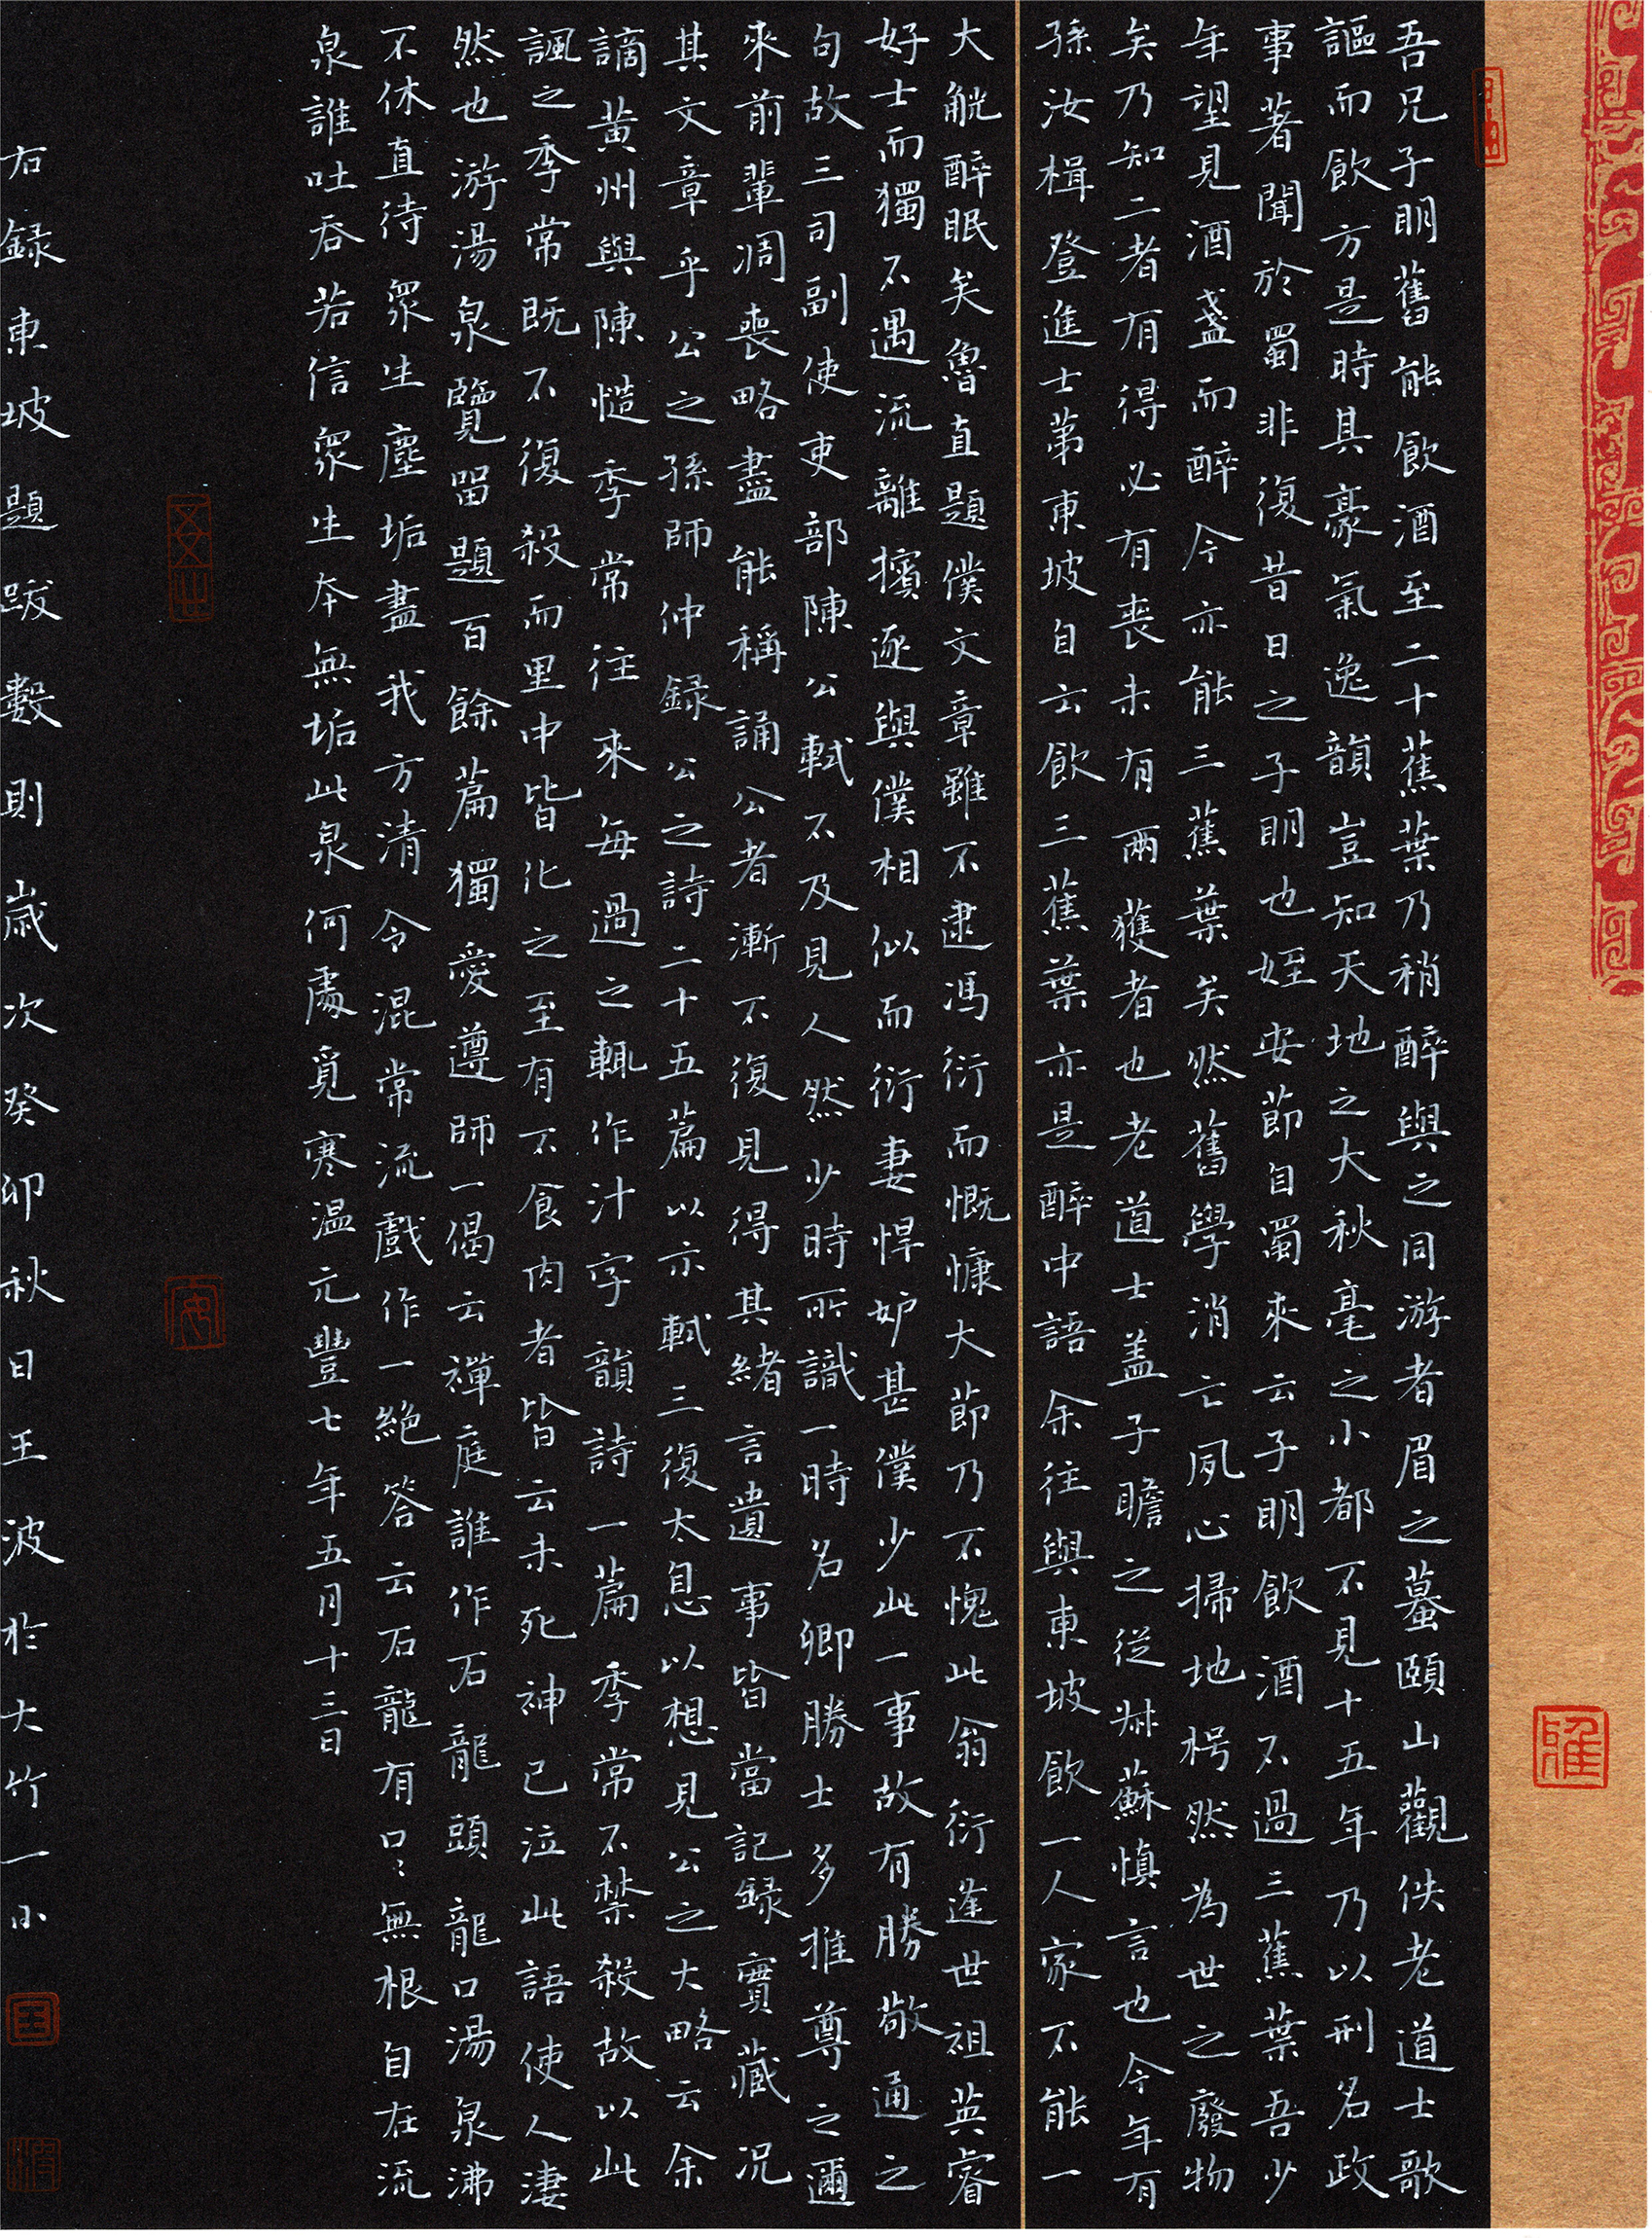 吾兄子明舊能飲酒至二十蕉葉乃稍醉與之同游者眉之蟇頤山觀佚老道士歌
謳而飲方是時其豪氣逸韻豈知天地之大秋毫之小都不見十五年乃以刑名政
事著聞於蜀非復昔日之子明也姪安節自蜀來云子明飲酒不過三蕉葉吾少
年望見酒盞而醉今亦能三蕉葉矣然舊學消亡夙心掃地枵然為世之廢物
矣乃知二者有得必有喪未有兩獲者也老道士盖子瞻之從叔蘇慎言也今年有
孫汝楫登進士第東坡自云飲三蕉葉亦是醉中語余往與東坡飲一人家不能一
大觥醉眠矣魯直題僕文章雖不逮馮衍而慨慷大節乃不愧此翁衍逢世祖英睿
好士而獨不遇流離擯逐與僕相似而衍妻悍妒甚僕少此一事故有勝敬通之
句故三司副使吏部陳公軾不及見人然少時所識一時名卿勝士多推尊之邇
來前輩凋喪略盡能稱誦公者漸不復見得其緒言遺事皆當記錄實藏况
其文章乎公之孫師仲録公之詩二十五篇以示軾三復太息以想見公之大略云余
謫黃州與陳慥季常往來每過之輒作汁字韻詩一篇季常不禁殺故以此
諷之季常既不復殺而里中皆化之至有不食肉者皆云未死神已泣此語使人淒
然也游湯泉覽留題百餘篇獨愛遵師一偈云禪庭誰作石龍頭龍口湯泉沸
不休直待衆生塵垢盡我方清令混常流戲作一絕答云石龍有口口無根自在流
泉誰吐吞若信衆生本無垢此泉何處覓寒温元豐七年五月十三日
右録東坡題跋數則歲次癸卯秋日王波於大竹一小